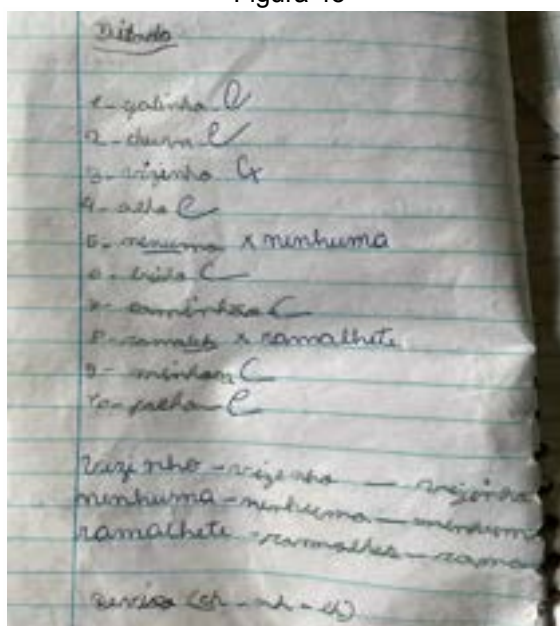 Ditado
1- galinha C
2- chuva C
3- vizinho Cx
4- alho C
5- nenuma x nenhuma
6- C
7- C
8- x ramalhete
9- minhoca C
10- palha C
vizinho - vizinho — vizinho
nenhuma - nenhuma — nenhum
ramalhete - ramalhete — rama
(ch - nh - lh)